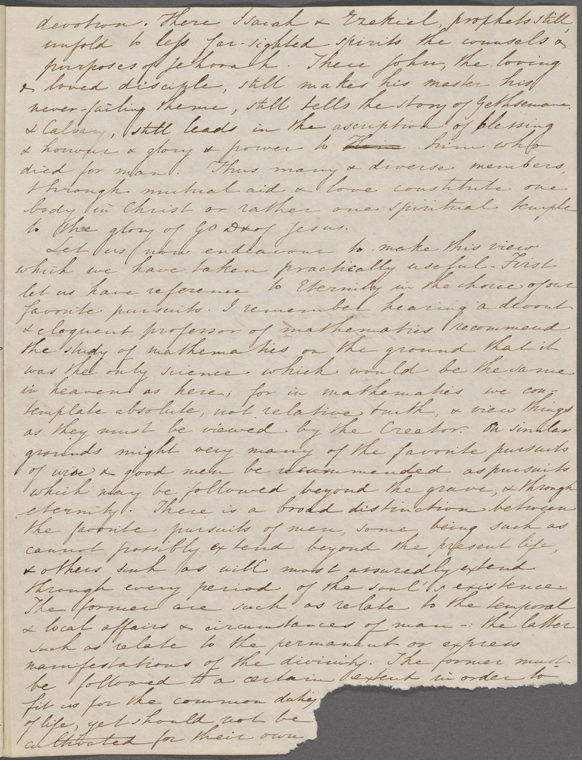 devotion. There Isaiah & Ezekiel, prophets still
unfold to less far-sighted spirits the counsels &
purposes of Jehovah. There John, the loving
& loved disciple, still makes his master his
never-failing theme, still tells the story of Gethsemane
& Calvary, still leads in the ascription of blessing
& honour & glory & power to him who
died for man. Thus many & diverse members,
through mutual aid & love constitute one
body in Christ or rather one spiritual temple
to the glory of God & of Jesus.
Let us now endeavour to make this view
which we have taken practically useful. First
let us have reference to Eternity in the choice of our
favorite pursuits. I remember hearing a devout
& eloquent professor of mathematics recommend
the study of mathematics on the ground that it
was the only science which would be the same
in heaven as here; for in mathematics we con-
template absolute, not relative truth, & view things
as they must be viewed by the Creator. On similar
grounds might very many of the favorite pursuits
of wise & good men be recommended as pursuits
which may be followed beyond the grave, & through
eternity. There is a broad distinction between
the favorite pursuits of men, some being such as
cannot possibly extend beyond the present life,
& others such as will most assuredly extend
through every period of the soul's existence.
The former are such as relate to the temporal
& local affairs & circumstances of man – the latter
such as relate to the permanent or express
manifestations of the divinity. The former must
be followed to a certain extent in order to
fit us for the common duties
of life, yet should not be
cultivated for their own